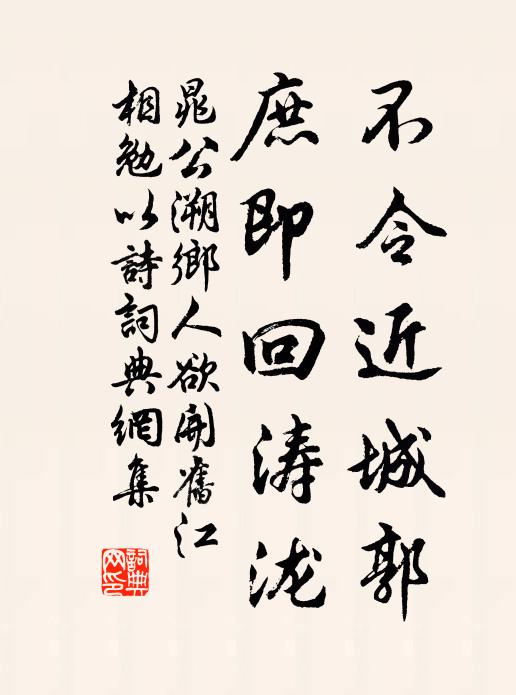 不令近城郭
庶即回涛泷
晁公溯鄉人欲開舊江
相勉以詩詞典網集
詞典网印